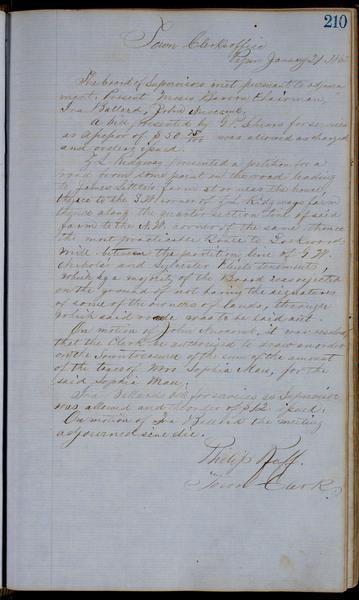 210
Town Clerks office
January 21 186
The board of Supervisors met pursuant to adjourn
ment. Present Chairman,
Ira Ballard, John Nuscomb.
A bill presented by G. P. for services
as of $50 75/100 was allowed as charged
and order issued.
G L Ridgway presented a petition for a
road from some point on the road leading
to James farm at or near the house,
thence to the S.W. corner of G L Ridgways farm
thence along the quarter section line of said
farm to the N.W. corner of the same. thence
the most practicable route to Lockwood
Mill between the partition line of G W.
Nicholas and Sylvester tenements,
Which by a majority of the Board was rejected
on the ground of not having the signatures
of some of the owners of lands, through
which said road was to be laid and
On motion of John Nuscomb, it was resolved
that the Clerk be authorized to draw an order
on the Town treasurer of the sum of the amount
of the taxes of Mrs Sophia Man, for the
said Sophia Man.
Ira Ballards bill for services as Supervisor
was allowed and order of $12. issued.
On motion of Ira Ballard the meeting
adjourned sine die.
Philip Ruff.
Town Clerk